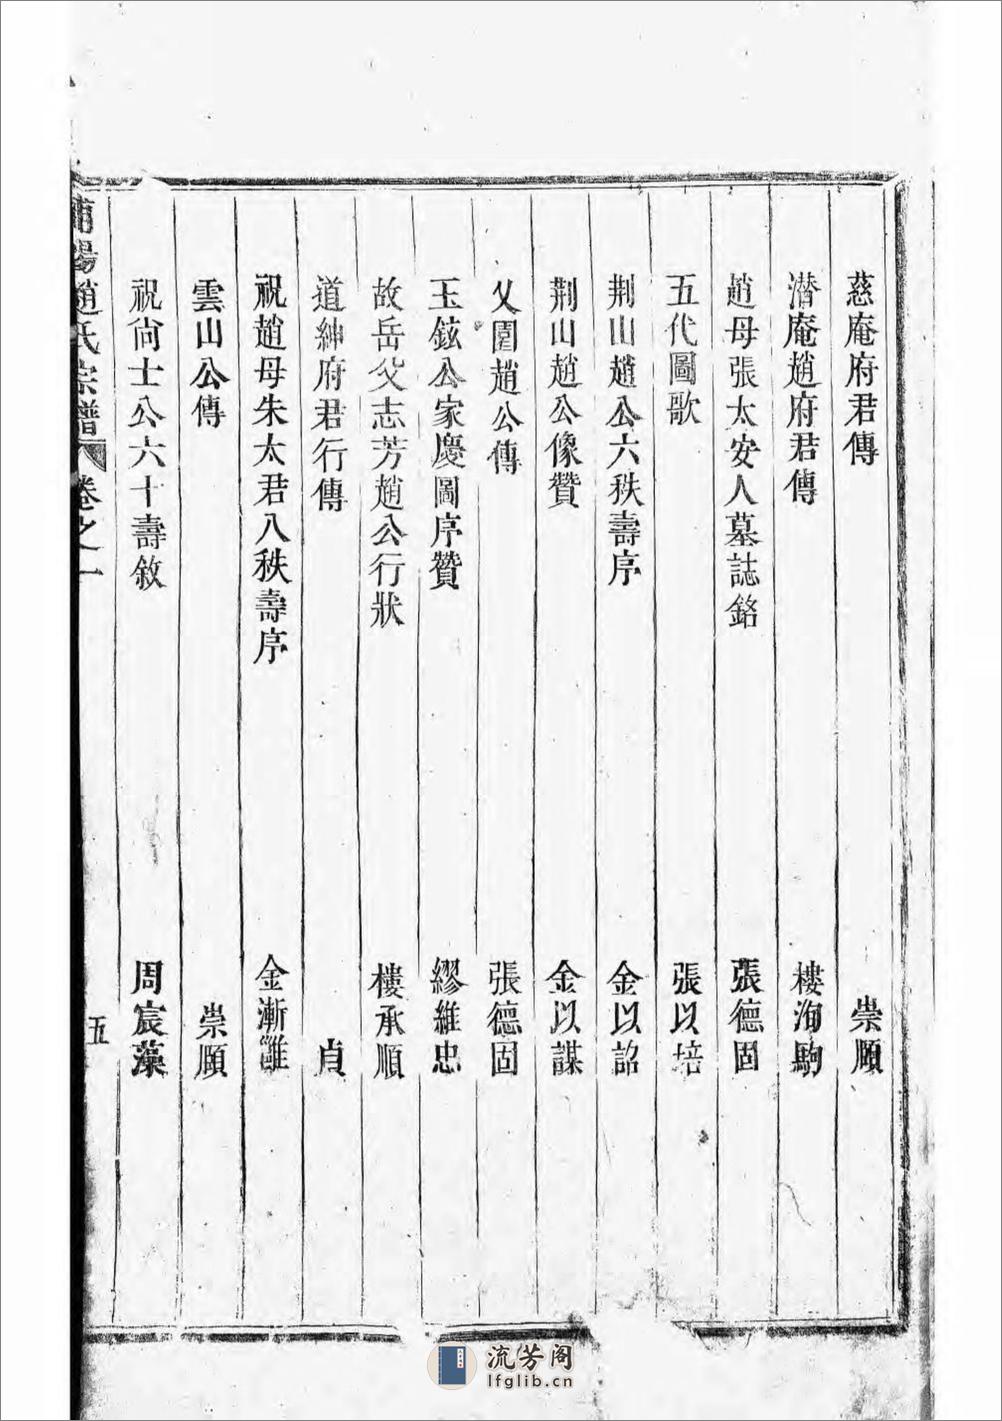 慈庵府君傳 崇願
潛庵趙府君傳 樓洵駒
趙母張太安人墓誌銘 張德固
五代圖歌 張以培
荆山趙公六秩壽序 金以詔
荆山趙公像贊 金以謀
乂園趙公傳 張德固
玉鉉公家慶圖序贊 繆維忠
故岳父志芳趙公行狀 樓承順
道紳府君行傳 貞
祝趙母朱太君八秩壽序 金漸雝
雲山公傳 崇願
祝尙士公六十壽敘 周宸藻
浦陽趙氏宗譜 卷之一 五
流芳阁
lfglib.cn